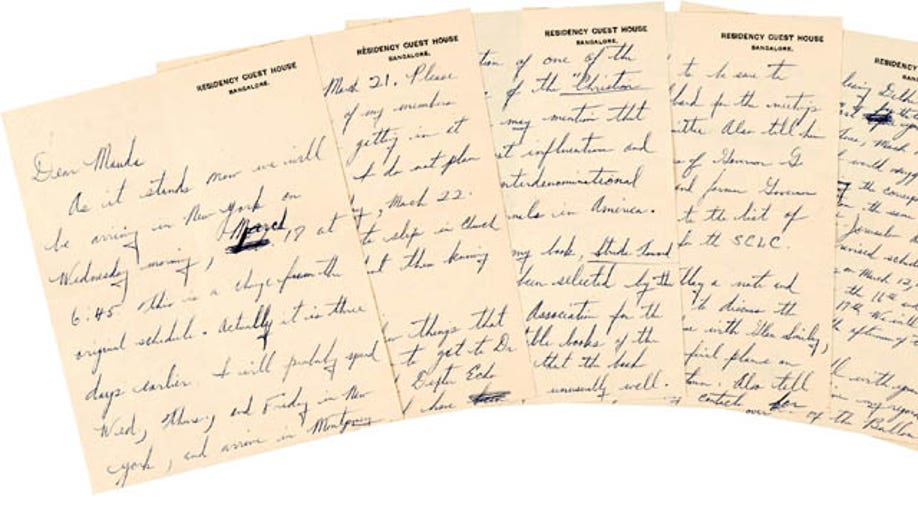 RESIDENCY GUEST HOUSE
BANGALORE.
Dear Maude
As it stands now we will
be arriving in New York on
Wednesday morning, March 18 at
6:45. This is a change from the
original schedule. Actually it is three
days earlier. I will probably spend
Wed, Thurs, and Friday in New
York, and arrive in Montgomery
RESIDENCY GUEST HOUSE
BANGALORE.
March 21. Please
of my members
getting in at
I do not plan
March 22.
to slip in Church
them knowing
things that
to get to Dr
Dexter Echo
have
RESIDENCY GUEST HOUSE
BANGALORE.
of one of the
of the "Christian
may mention that
influential and
interdenominational
in America.
my book, Stride Toward
been selected by the
Association for the
books of the
that the book
unusually well.
RESIDENCY GUEST HOUSE
BANGALORE.
to be sure to
for the meetings
Also tell him
of Governor G
and former Governor
to the list of
for the SCLC.
a note and
to discuss the
with Glenn Smiley,
final plans on
Also tell
contact for
over
RESIDENCY
BANG
Delhi
March
would
of the
the same
Jerusalem
revised
on March 12,
the 16th
17th. We will
afternoon of
with you
my
of the